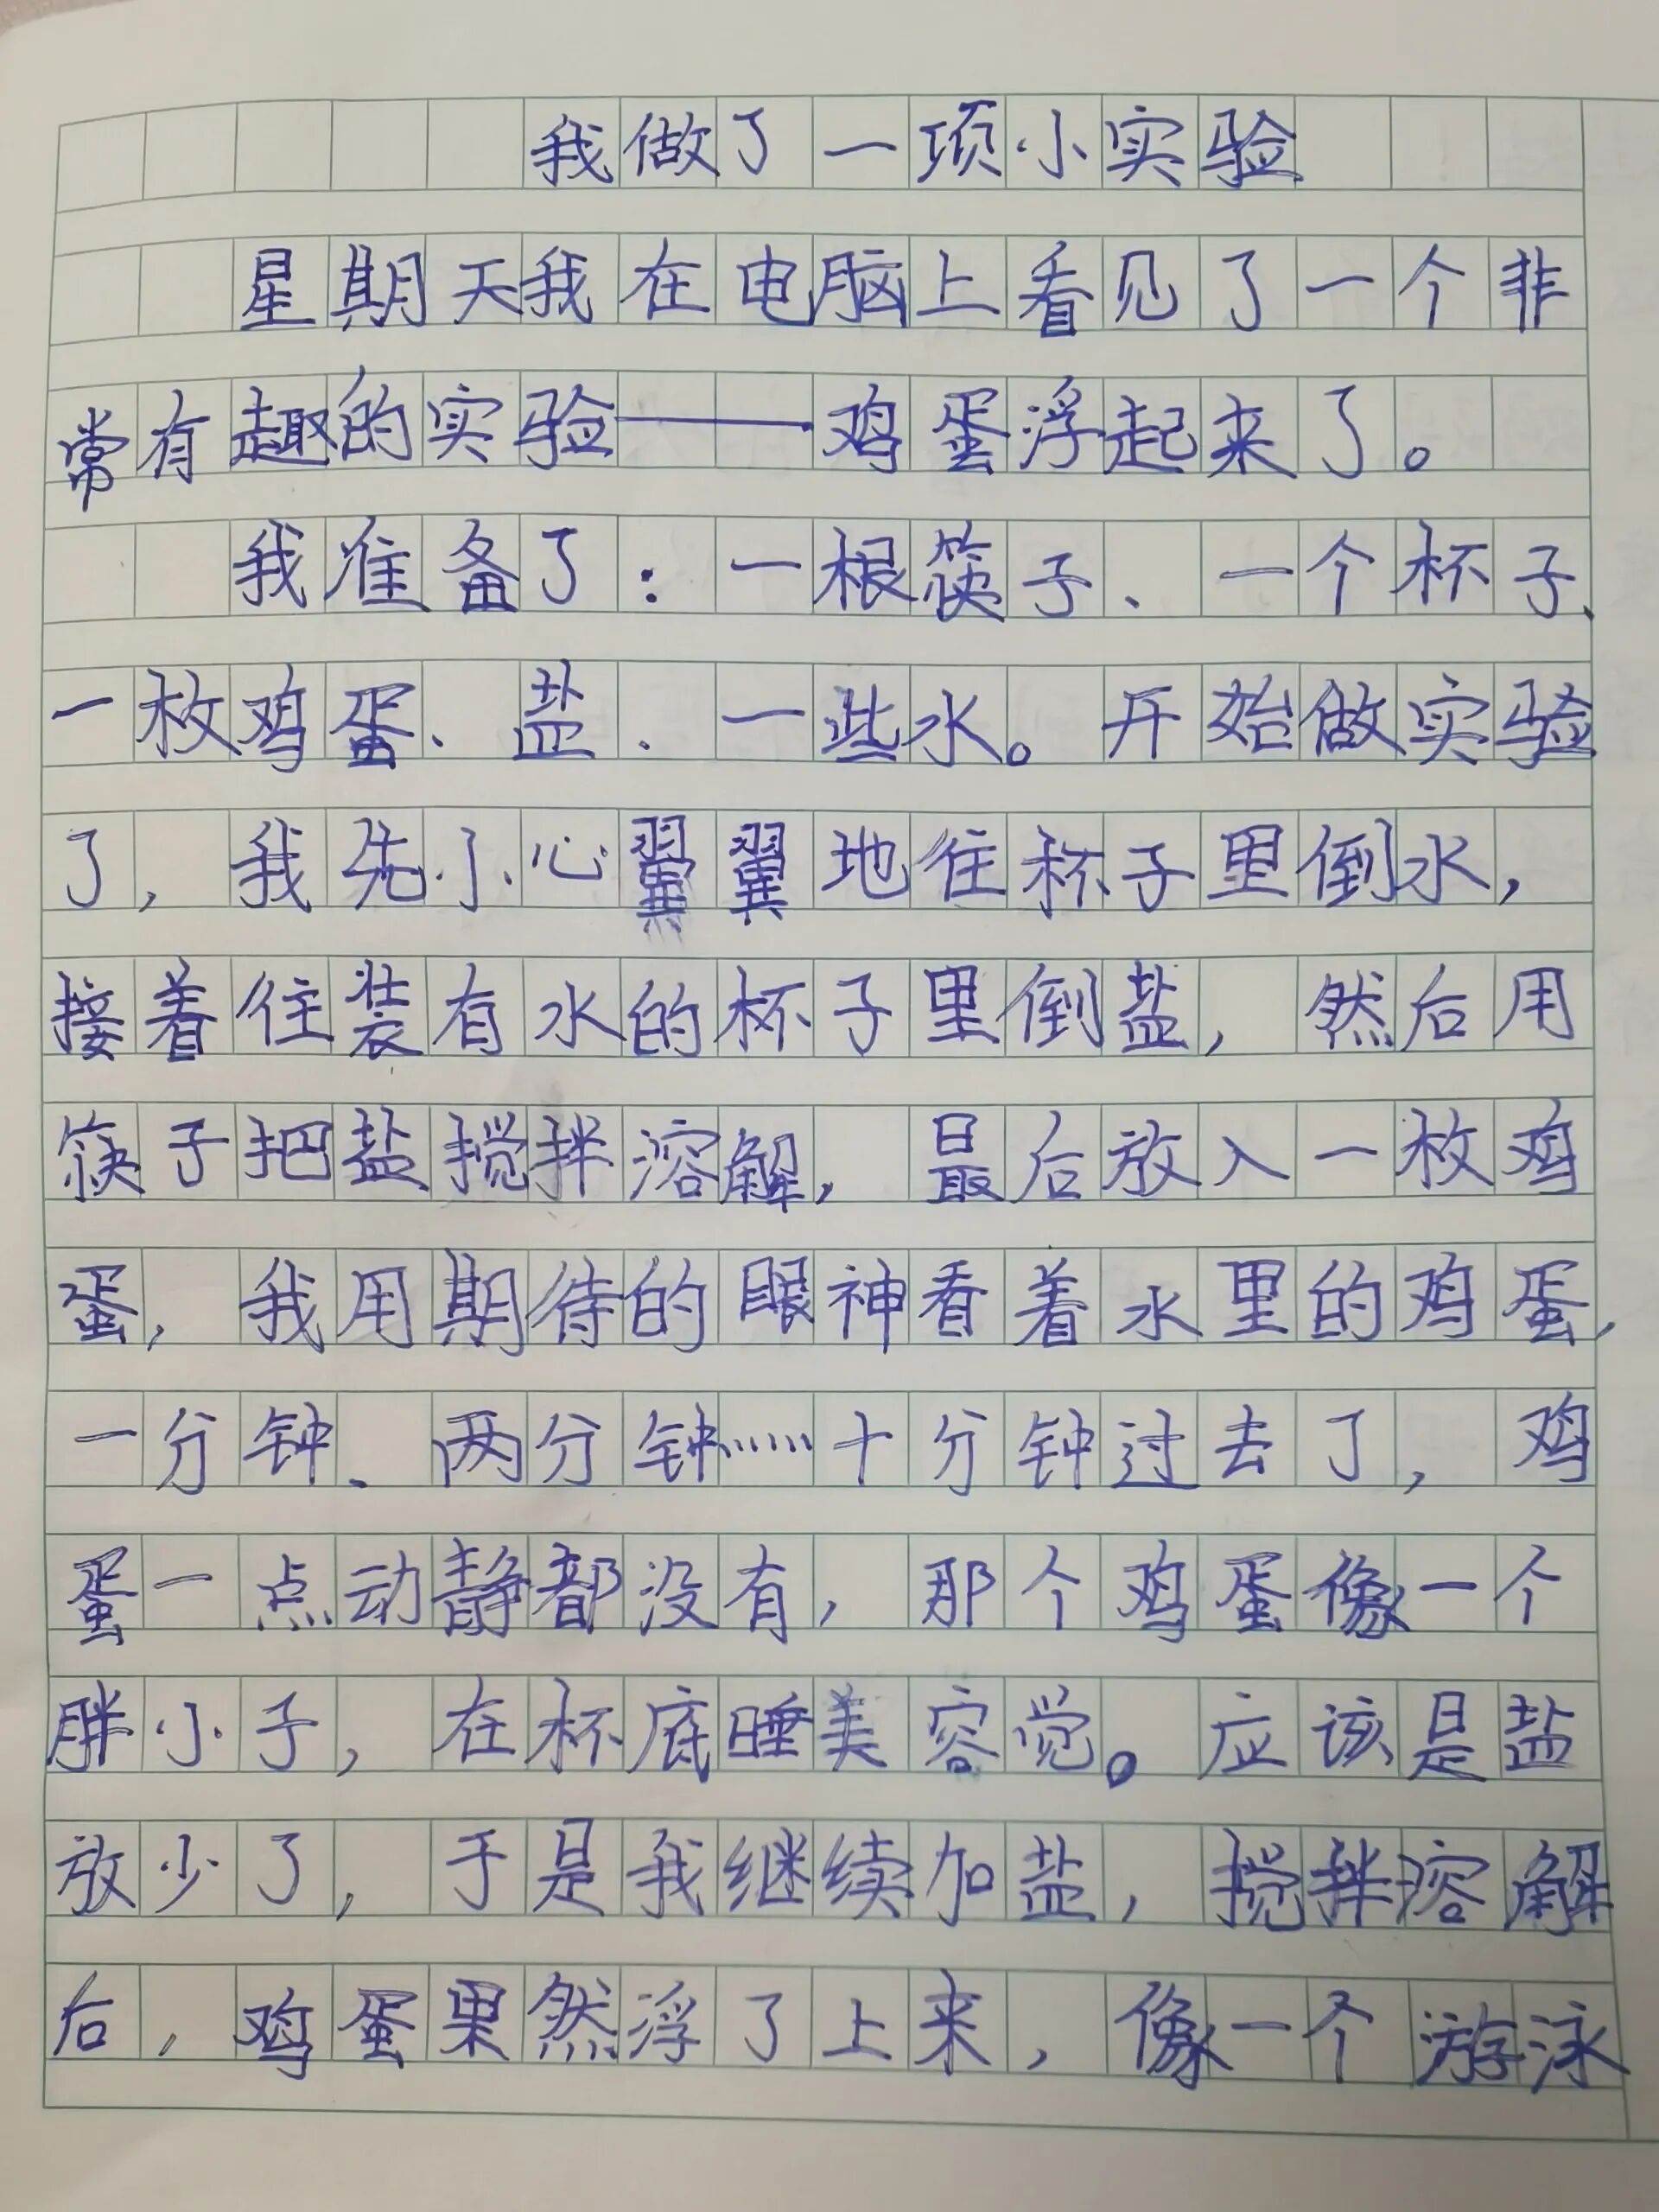 我做了一项小实验
星期天我在电脑上看见了一个非
常有趣的实验——鸡蛋浮起来了。
我准备了：一根筷子、一个杯子、
一枚鸡蛋、盐、一些水。开始做实验
了，我先小心翼翼地往杯子里倒水，
接着往装有水的杯子里倒盐，然后用
筷子把盐搅拌溶解，最后放入一枚鸡
蛋，我用期待的眼神看着水里的鸡蛋，
一分钟、两分钟……十分钟过去了，鸡
蛋一点动静都没有，那个鸡蛋像一个
胖小子，在杯底睡美容觉。应该是盐
放少了，于是我继续加盐，搅拌溶解
后，鸡蛋果然浮了上来，像一个游泳